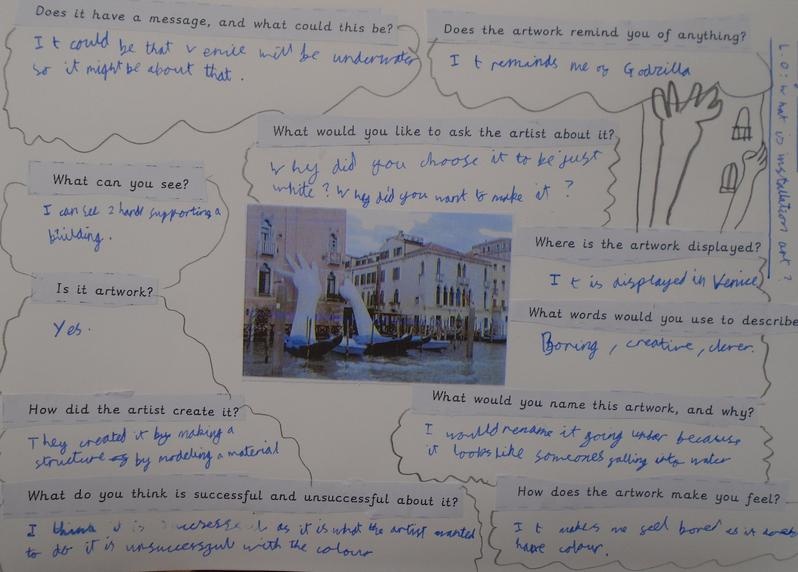 Does it have a message, and what could this be?
It could be that venice will be underwater
so it might be about that.
Does the artwork remind you of anything?
It reminds me of Godzilla
L.O: What is installation art?
What would you like to ask the artist about it?
Why did you choose it to be just
white? Why did you want to make it?
What can you see?
I can see 2 hands supporting a
building.
Where is the artwork displayed?
It is displayed in Venice
Is it artwork?
Yes.
What words would you use to describe
Boring, creative, clever.
How did the artist create it?
They created it by making a
structure by modeling a material
What would you name this artwork, and why?
I would rename it going under because
it looks like someones falling into water
What do you think is successful and unsuccessful about it?
I think it is as it is what the artist wanted
to do it is unsuccessful with the colour
How does the artwork make you feel?
It makes me feel bored as it
have colour.